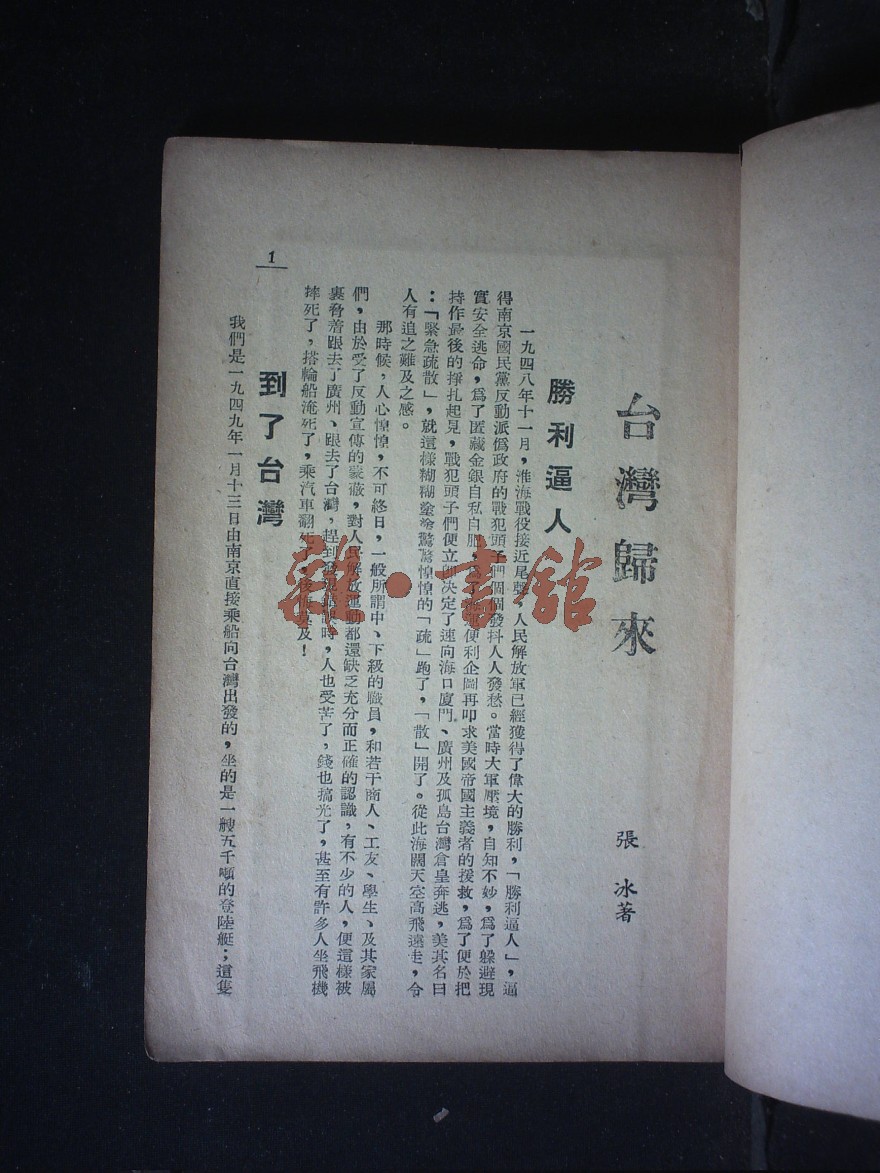 台灣歸來
張 冰著
勝利逼人
一九四八年十一月，淮海戰役接近尾聲，人民解放軍已經獲得了偉大的勝利，「勝利逼人」，逼
得南京國民黨反動派僞政府的戰犯頭子們個個發抖人人發愁。當時大軍壓境，自知不妙，爲了躱避現
實安全逃命，爲了匿藏金銀自私自肥，爲了便利企圖再叩求美國帝國主義者的援救，爲了便於把
持作最後的掙扎起見，戰犯頭子們便立卽決定了速向海口廈門、廣州及孤島台灣倉皇奔逃，美其名曰
：「緊急疏散」，就這樣糊糊塗塗驚驚惶惶的「疏」跑了，「散」開了。從此海闊天空高飛遠走，令
人有追之難及之感。
那時候，人心惶惶，不可終日，一般所謂中、下級的職員，和若干商人、工友、學生、及其家屬
們，由於受了反動宣傳的蒙蔽，對人民解放運動都還缺乏充分而正確的認識，有不少的人，便這樣被
裹脅着跟去了廣州、跟去了台灣，趕到時，人也受苦了，錢也搞光了，甚至有許多人坐飛機
摔死了，搭輪船淹死了，乘汽車翻死了，後悔莫及！
到了台灣
我們是一九四九年一月十三日由南京直接乘船向台灣出發的，坐的是一艘五千噸的登陸艇；這隻
1
雜·書館